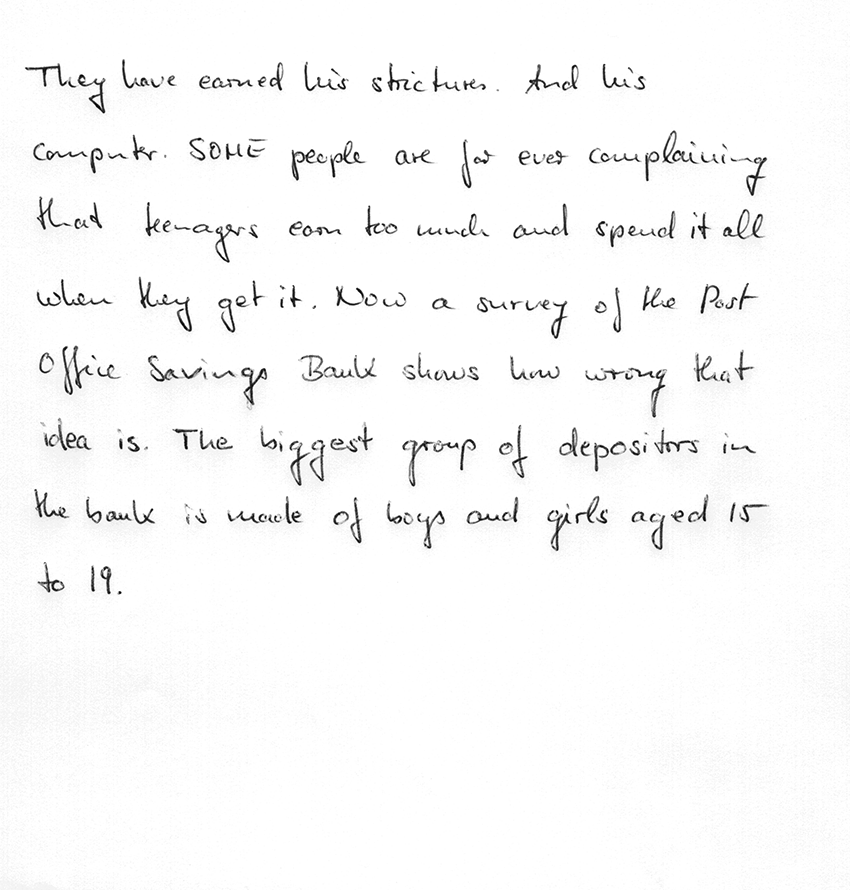 They have earned his strictures. And his
computer. SOME people are for ever complaining
that teenagers earn too much and spend it all
when they get it. Now a survey of the Post
Office Savings Bank shows how wrong that
idea is. The biggest group of depositors in
the bank is made of boys and girls aged 15
to 19.